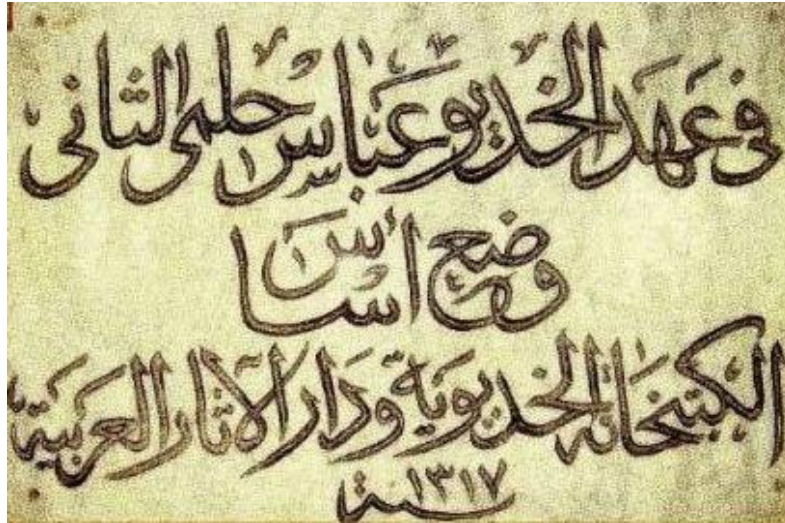 في عهد الخديو عباس حلمي الثاني
وضع أساس
الكتبخانة الخديوية ودار الآثار العربية
سنة ١٣١٧